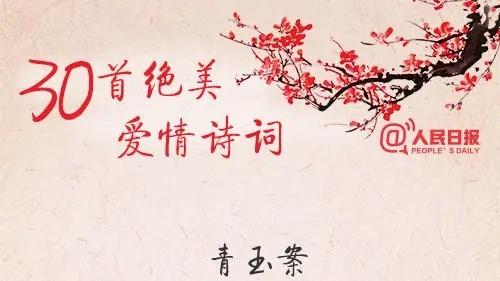 30首绝美
爱情诗词
@人民日报
PEOPLE'S DAILY
青玉案